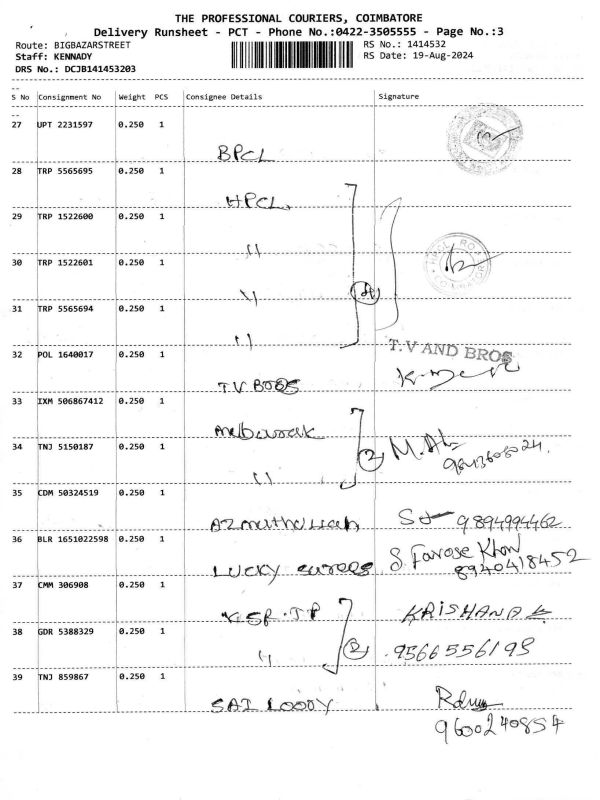 THE PROFESSIONAL COURIERS, COIMBATORE
Delivery Runsheet - PCT - Phone No.:0422-3505555 - Page No.:3
Route: BIGBAZARSTREET RS No.: 1414532
Staff: KENNADY RS Date: 19-Aug-2024
DRS No.: DCJB141453203
S No Consignment No Weight PCS Consignee Details Signature
27 UPT 2231597 0.250 1
BPCL
28 TRP 5565695 0.250 1
HPCL
29 TRP 1522600 0.250 1
"
30 TRP 1522601 0.250 1
"
31 TRP 5565694 0.250 1
"
32 POL 1640017 0.250 1 T.V AND BROS
T.V BROS
33 IXM 506867412 0.250 1
34 TNJ 5150187 0.250 1 2 M. Ali
" 9843608024.
35 CDM 50324519 0.250 1
9894994462
36 BLR 1651022598 0.250 1 Khan
LUCKY 8940418452
37 CMM 306908 0.250 1
KSR. TP KRISHANA K
38 GDR 5388329 0.250 1
" 2 9566556193
39 TNJ 859867 0.250 1
SAI LOODY
9600240854